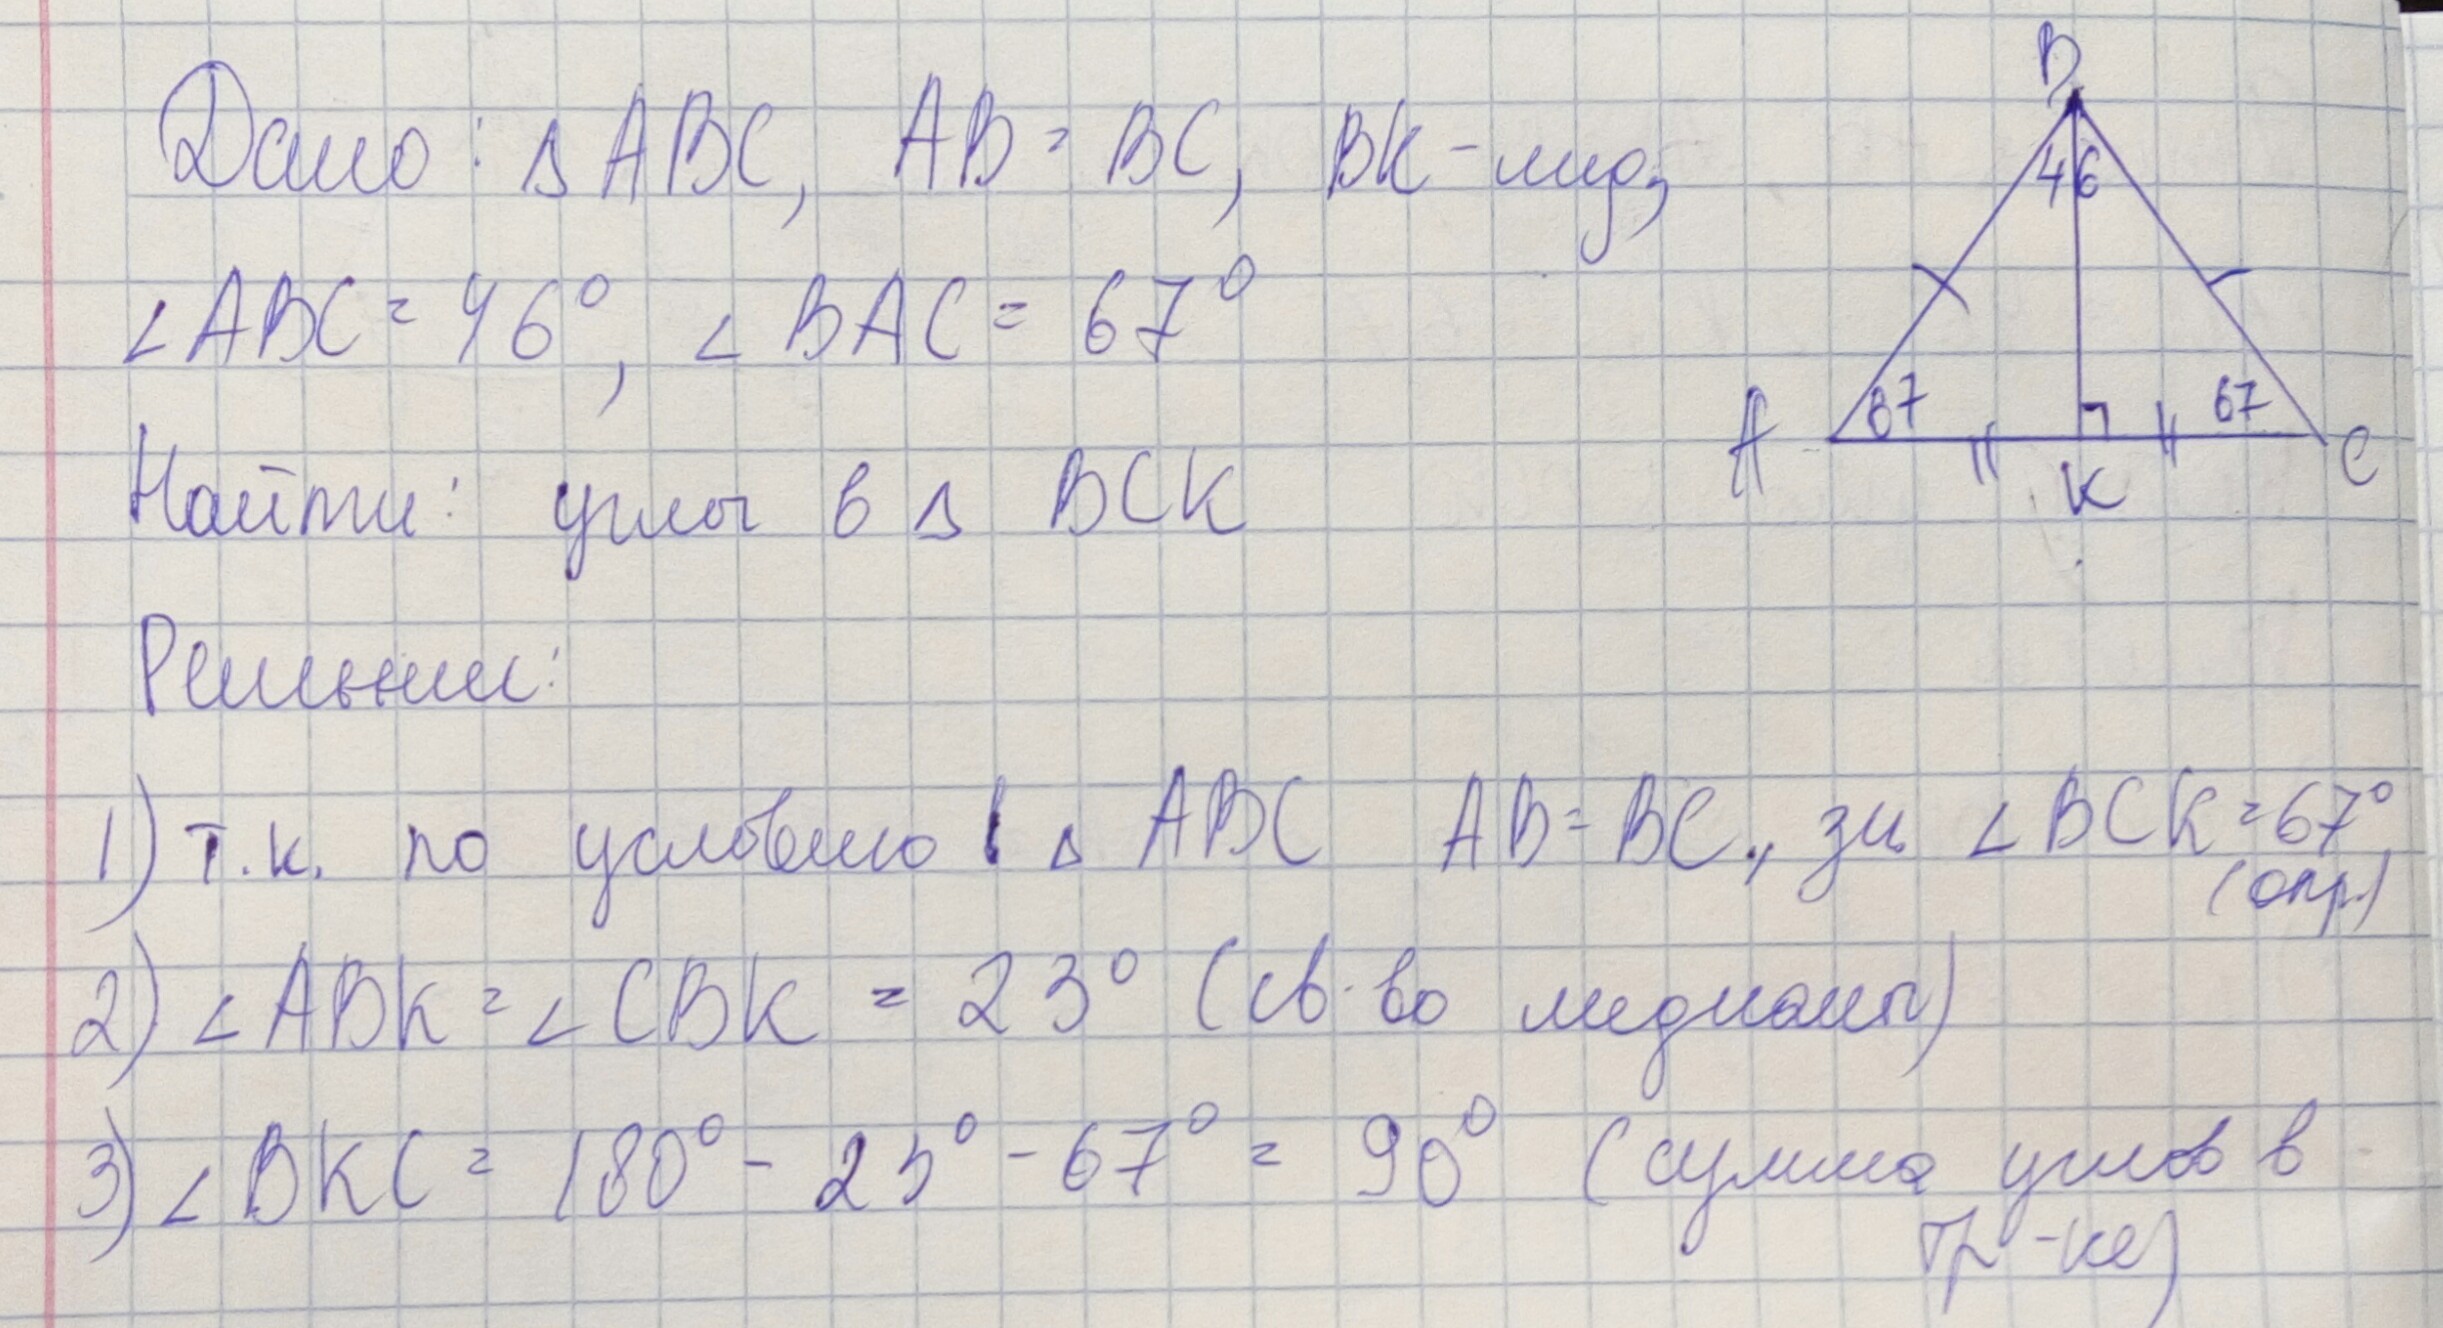 Дано: Δ ABC, AB = BC, BK - мед,
∠ABC = 46°, ∠BAC = 67°
Найти: углы в Δ BCK
Решение:
1) т.к. по условию в Δ ABC AB = BC, зн. ∠BCK = 67°
(опр.)
2) ∠ABK = ∠CBK = 23° (св-во медианы)
3) ∠BKC = 180° - 23° - 67° = 90° (сумма углов в
тр-ке)
B
46
67
67
A
K
C